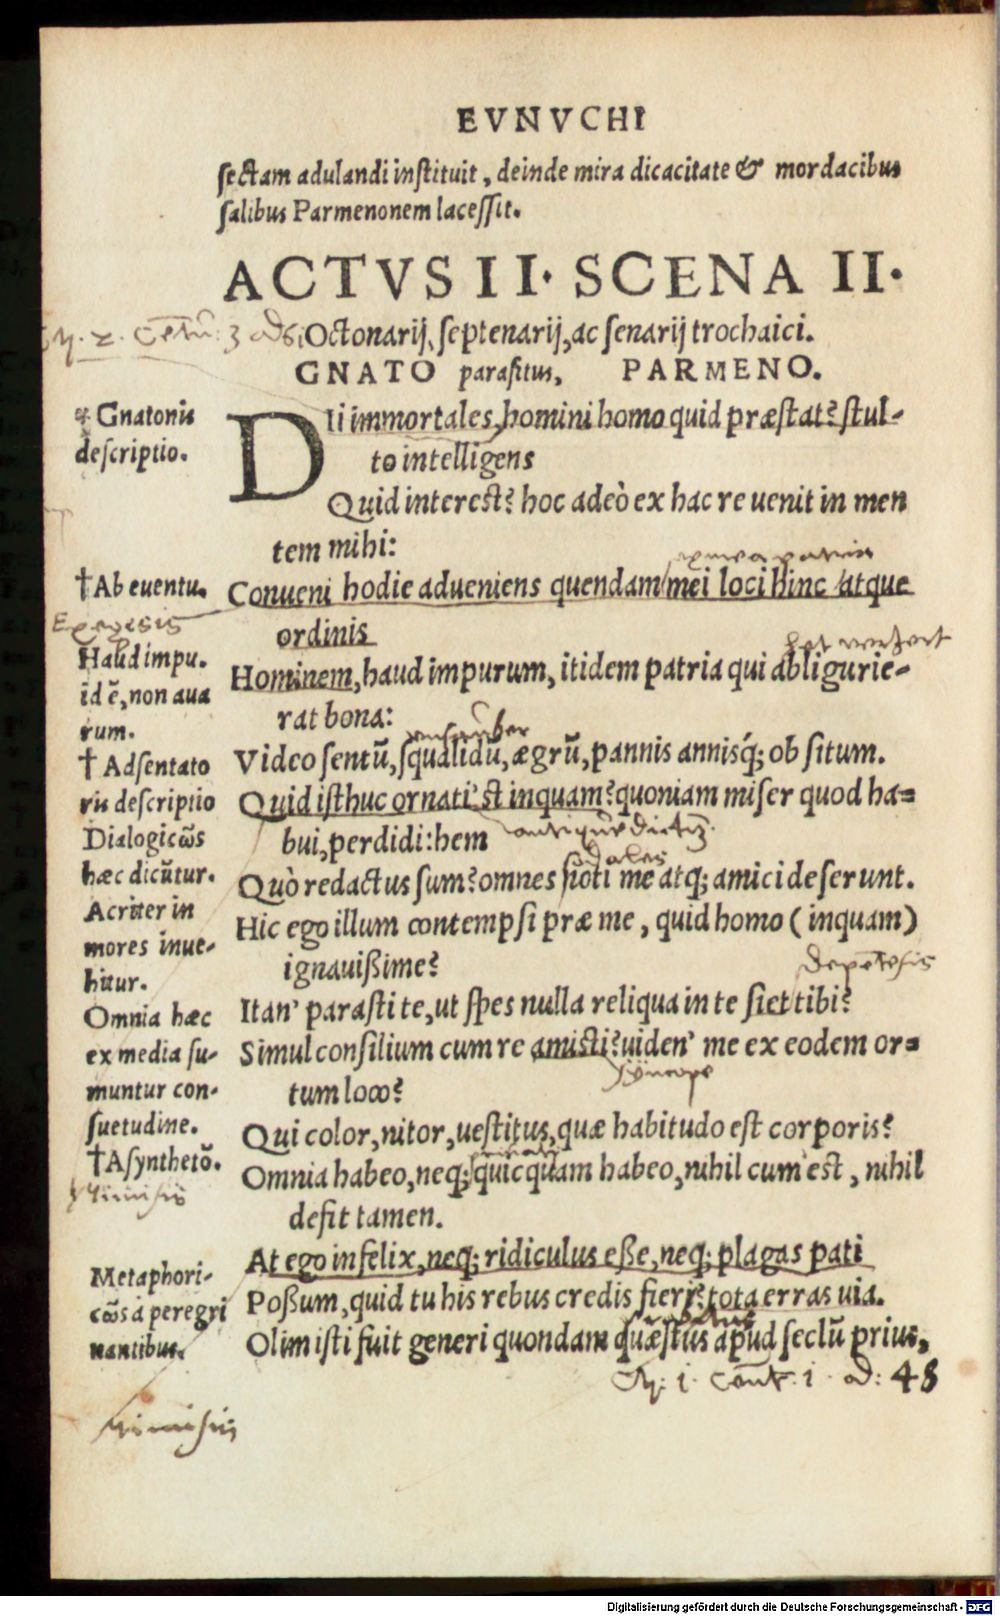 EVNVCHI
sectam adulandi instituit, deinde mira dicacitate & mordacibus
salibus Parmenonem lacessit.
ACTVS II. SCENA II.
Octonarij, septenarij, ac senarij trochaici.
GNATO parasitus, PARMENO.
* Gnatonis
descriptio.
DIi immortales, homini homo quid præstat? stul-
to intelligens
Quid interest? hoc adeò ex hac re uenit in men
tem mihi:
† Ab euentu.
Conueni hodie adueniens quendam mei loci hinc atque
ordinis
Exegesis
Haud impu.
id ē, non aua
rum.
Hominem, haud impurum, itidem patria qui abligurie-
rat bona:
† Adsentato
ris descriptio
Dialogicῶs
hæc dicūtur.
Acriter in
mores inue-
hitur.
Omnia hæc
ex media su-
muntur con-
suetudine.
† Asynthetō.
Video sentū, squalidū, ægrū, pannis annisq́; ob situm.
Quid isthuc ornati'st inquam? quoniam miser quod ha-
bui, perdidi: hem
sodales
Quò redactus sum? omnes noti me atq; amici deserunt.
Hic ego illum contempsi præ me, quid homo (inquam)
ignauißime?
Itan' parasti te, ut spes nulla reliqua in te siet tibi?
Simul consilium cum re amisti? uiden' me ex eodem or-
tum loco?
syncope
Qui color, nitor, uestitus, quæ habitudo est corporis?
Omnia habeo, neq; quicquam habeo, nihil cum est, nihil
defit tamen.
Mimisis
Metaphori-
cῶs à peregri
nantibus.
At ego infelix, neq; ridiculus eße, neq; plagas pati
Poßum, quid tu his rebus credis fieri? tota erras uia.
Olim isti fuit generi quondam quæstus apud seclū prius,
48
Mimisis
Digitalisierung gefördert durch die Deutsche Forschungsgemeinschaft - DFG